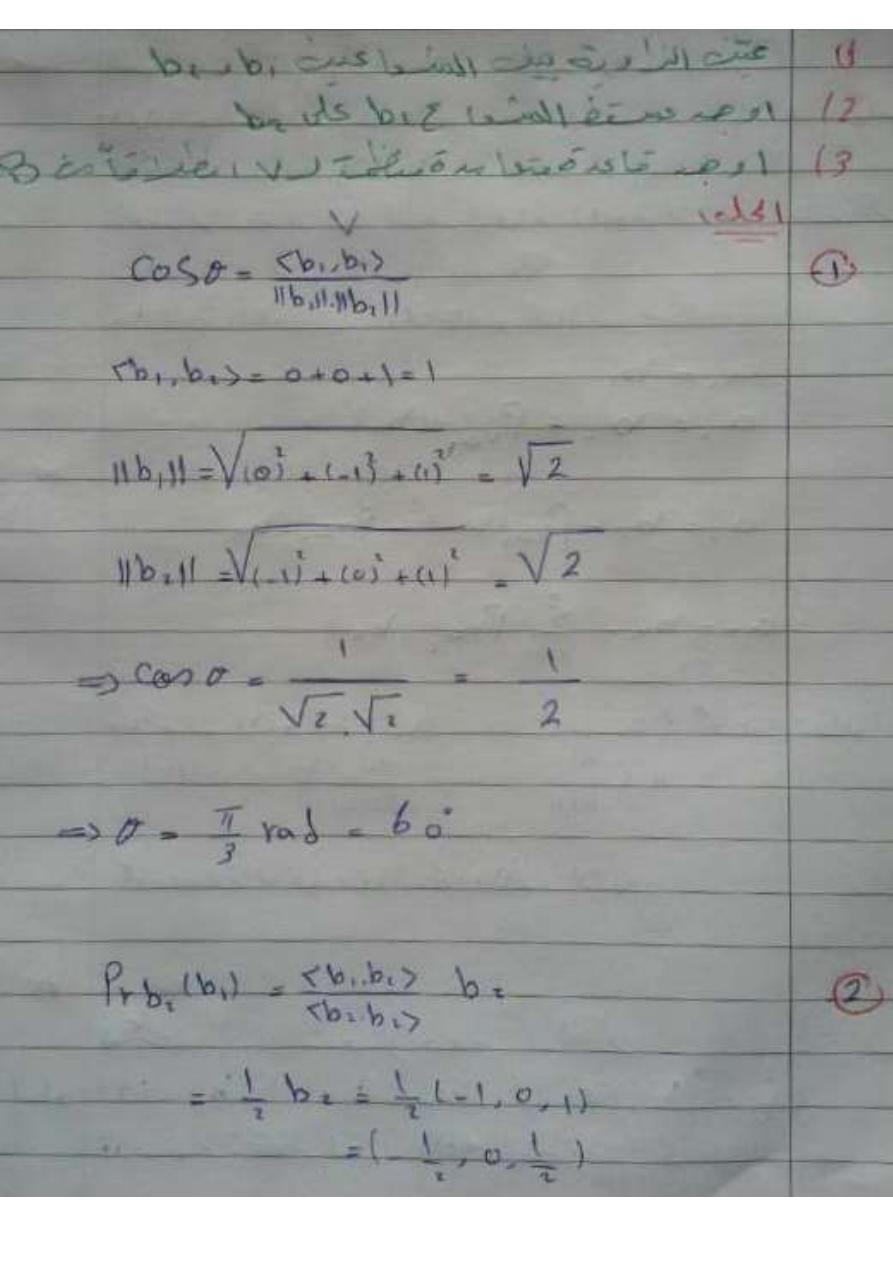 1) عيّن الزاوية بين الشعاعين b₁ و b₂
2) اوجد مسقط الشعاع b₁ على b₂
3) اوجد قاعدة متعامدة منظمة لـ V انطلاقاً من B
الحل:
V
① Cos θ = <b₁, b₁> / ||b₁||.||b₂||
<b₁, b₂> = 0+0+1=1
||b₁|| = √(0)² + (-1)² + (1)² = √2
||b₂|| = √(-1)² + (0)² + (1)² = √2
⇒ Cos θ = 1 / √2 . √2 = 1 / 2
⇒ θ = π/3 rad = 60°
② Pr b₂ (b₁) = <b₁.b₂> / <b₂.b₂> b₂
= 1/2 b₂ = 1/2 (-1, 0, 1)
= (-1/2, 0, 1/2)